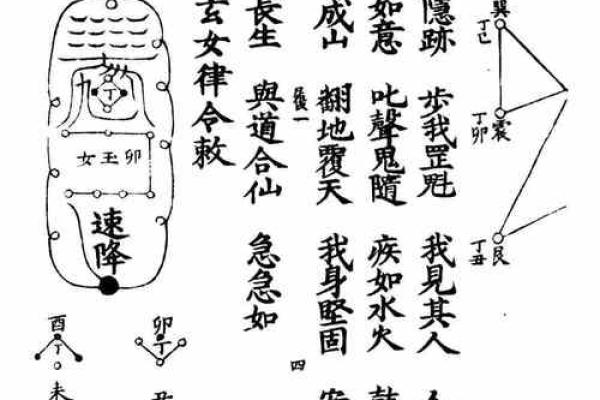 巽
丁巳
震
丁卯
艮
丁丑
隱跡 步我罡魁 我見其人
如意 叱聲鬼隨 疾如水火
成山 翻地覆天 我身堅固
四
長生 與道合仙 急急如
玄女律令敕
丁
卯玉女
速降
酉
丁
未
卯
丁